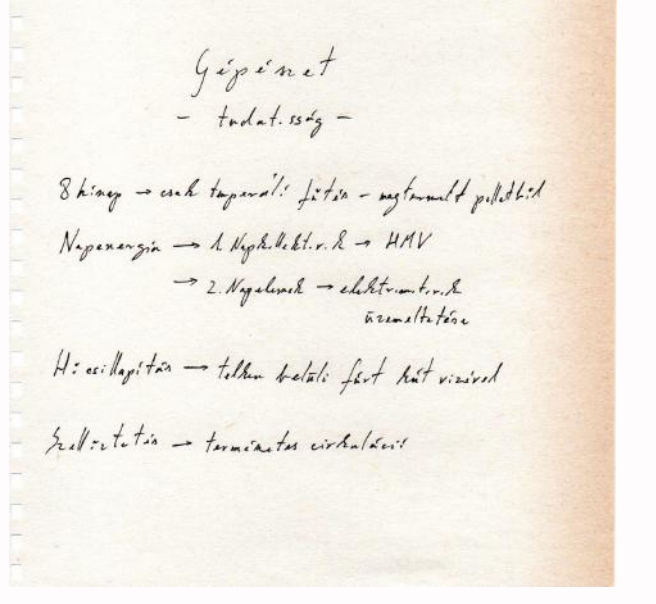 Gépészet
- tudatosság -
8 hónap → csak temperáló fűtés - megtermelt pelletből
Napenergia → 1. Napkollektorok → HMV
→ 2. Napelemek → elektromotorok
üzemeltetése
Hőcsillapítás → telken belüli fúrt kút vizével
Szellőztetés → természetes cirkuláció